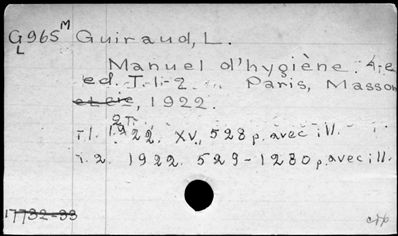 G965 M Guiraud, L.
L
Manuel d'hygiène. 4-e
ed. T. 1-2. Paris, Masson
et cie, 1922.
2 т.
т.1. 1922. XV, 528 p. avec ill.
т.2. 1922. 529-1280 p. avec ill.
17732-33